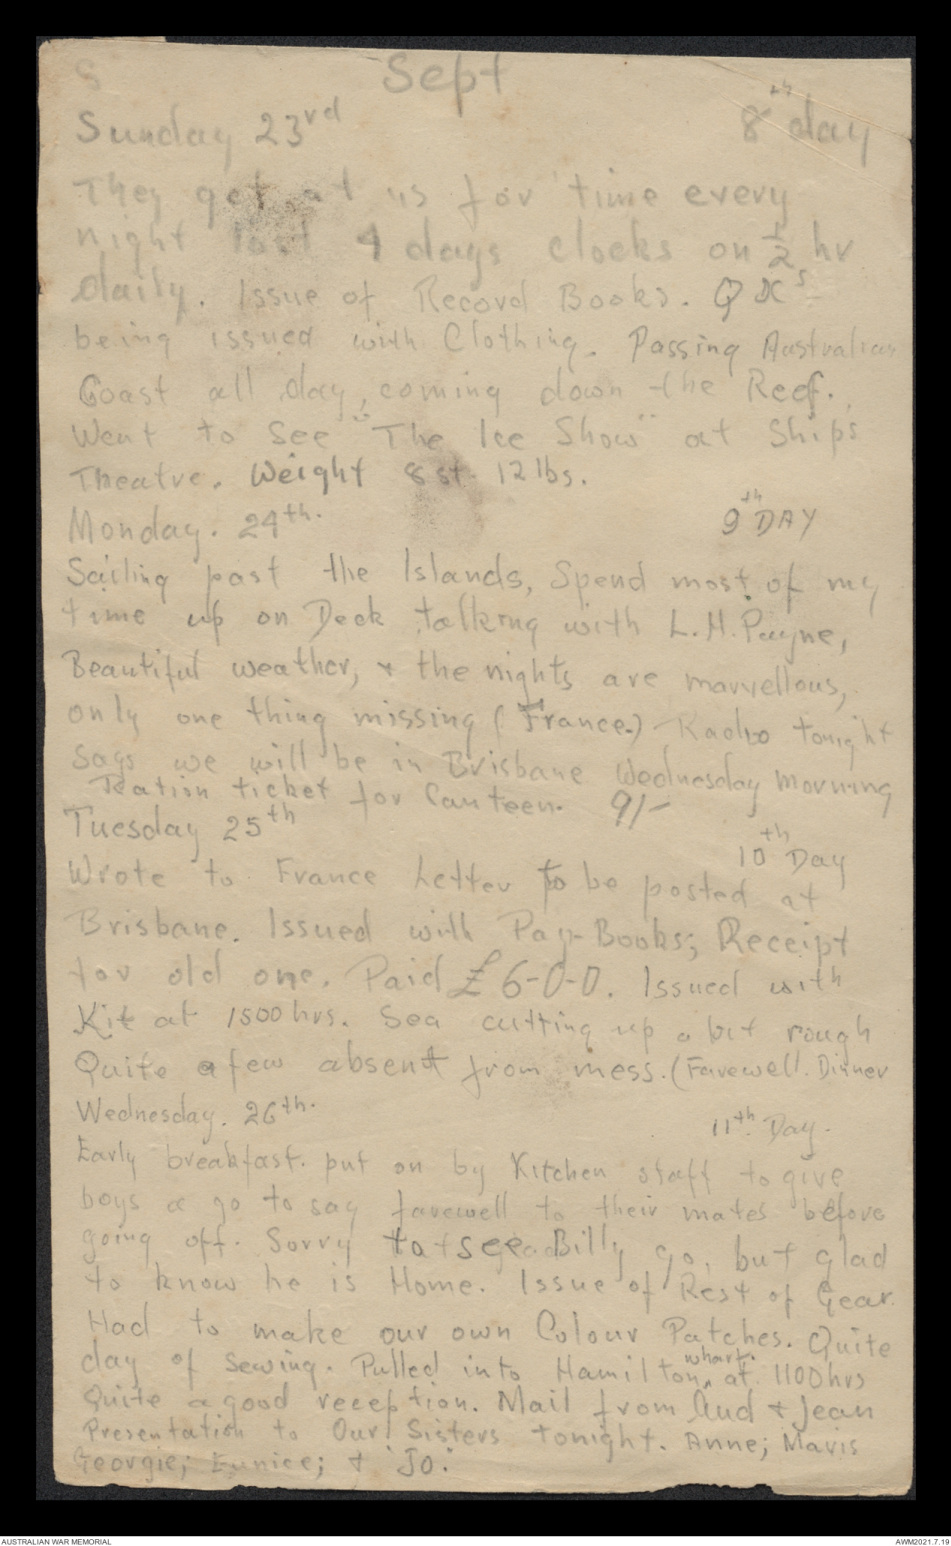 S Sept
Sunday 23rd 8th day
They get at us for time every
night last 4 days clocks on ½ hr
daily. Issue of Record Books. QXs
being issued with Clothing. Passing Australian
Coast all day, coming down the Reef.
Went to See "The Ice Show" at Ships
Theatre. Weight 8 st 12 lbs.
Monday. 24th. 9th DAY
Sailing past the Islands, Spend most of my
time up on Deck talking with L.H. Payne,
Beautiful weather, + the nights are marvellous,
only one thing missing (France.) Radio tonight
says we will be in Brisbane Wednesday morning
Ration ticket for Canteen. 9/-
Tuesday 25th 10th Day
Wrote to France Letter to be posted at
Brisbane. Issued with Pay-Books; Receipt
for old one. Paid £6-0-0. Issued with
Kit at 1500 hrs. Sea cutting up a bit rough
Quite a few absent from mess. (Farewell. Dinner
Wednesday. 26th. 11th Day.
Early breakfast. put on by Kitchen staff to give
boys a go to say farewell to their mates before
going off. Sorry to see Billy go, but glad
to know he is Home. Issue of Rest of Gear.
Had to make our own Colour Patches. Quite
day of Sewing. Pulled into Hamilton wharf. at 1100 hrs
Quite a good reception. Mail from Aud + Jean
Presentation to Our Sisters tonight. Anne; Mavis
Georgie; Eunice; + 'Jo.'
AUSTRALIAN WAR MEMORIAL AWM2021.7.19